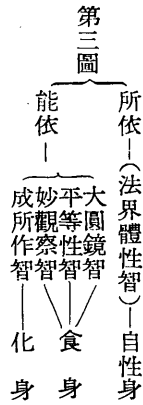 第三圖
所依—(法界體性智)—自性身
能依—
大圓鏡智
平等性智
妙觀察智
成所作智
食身
化身